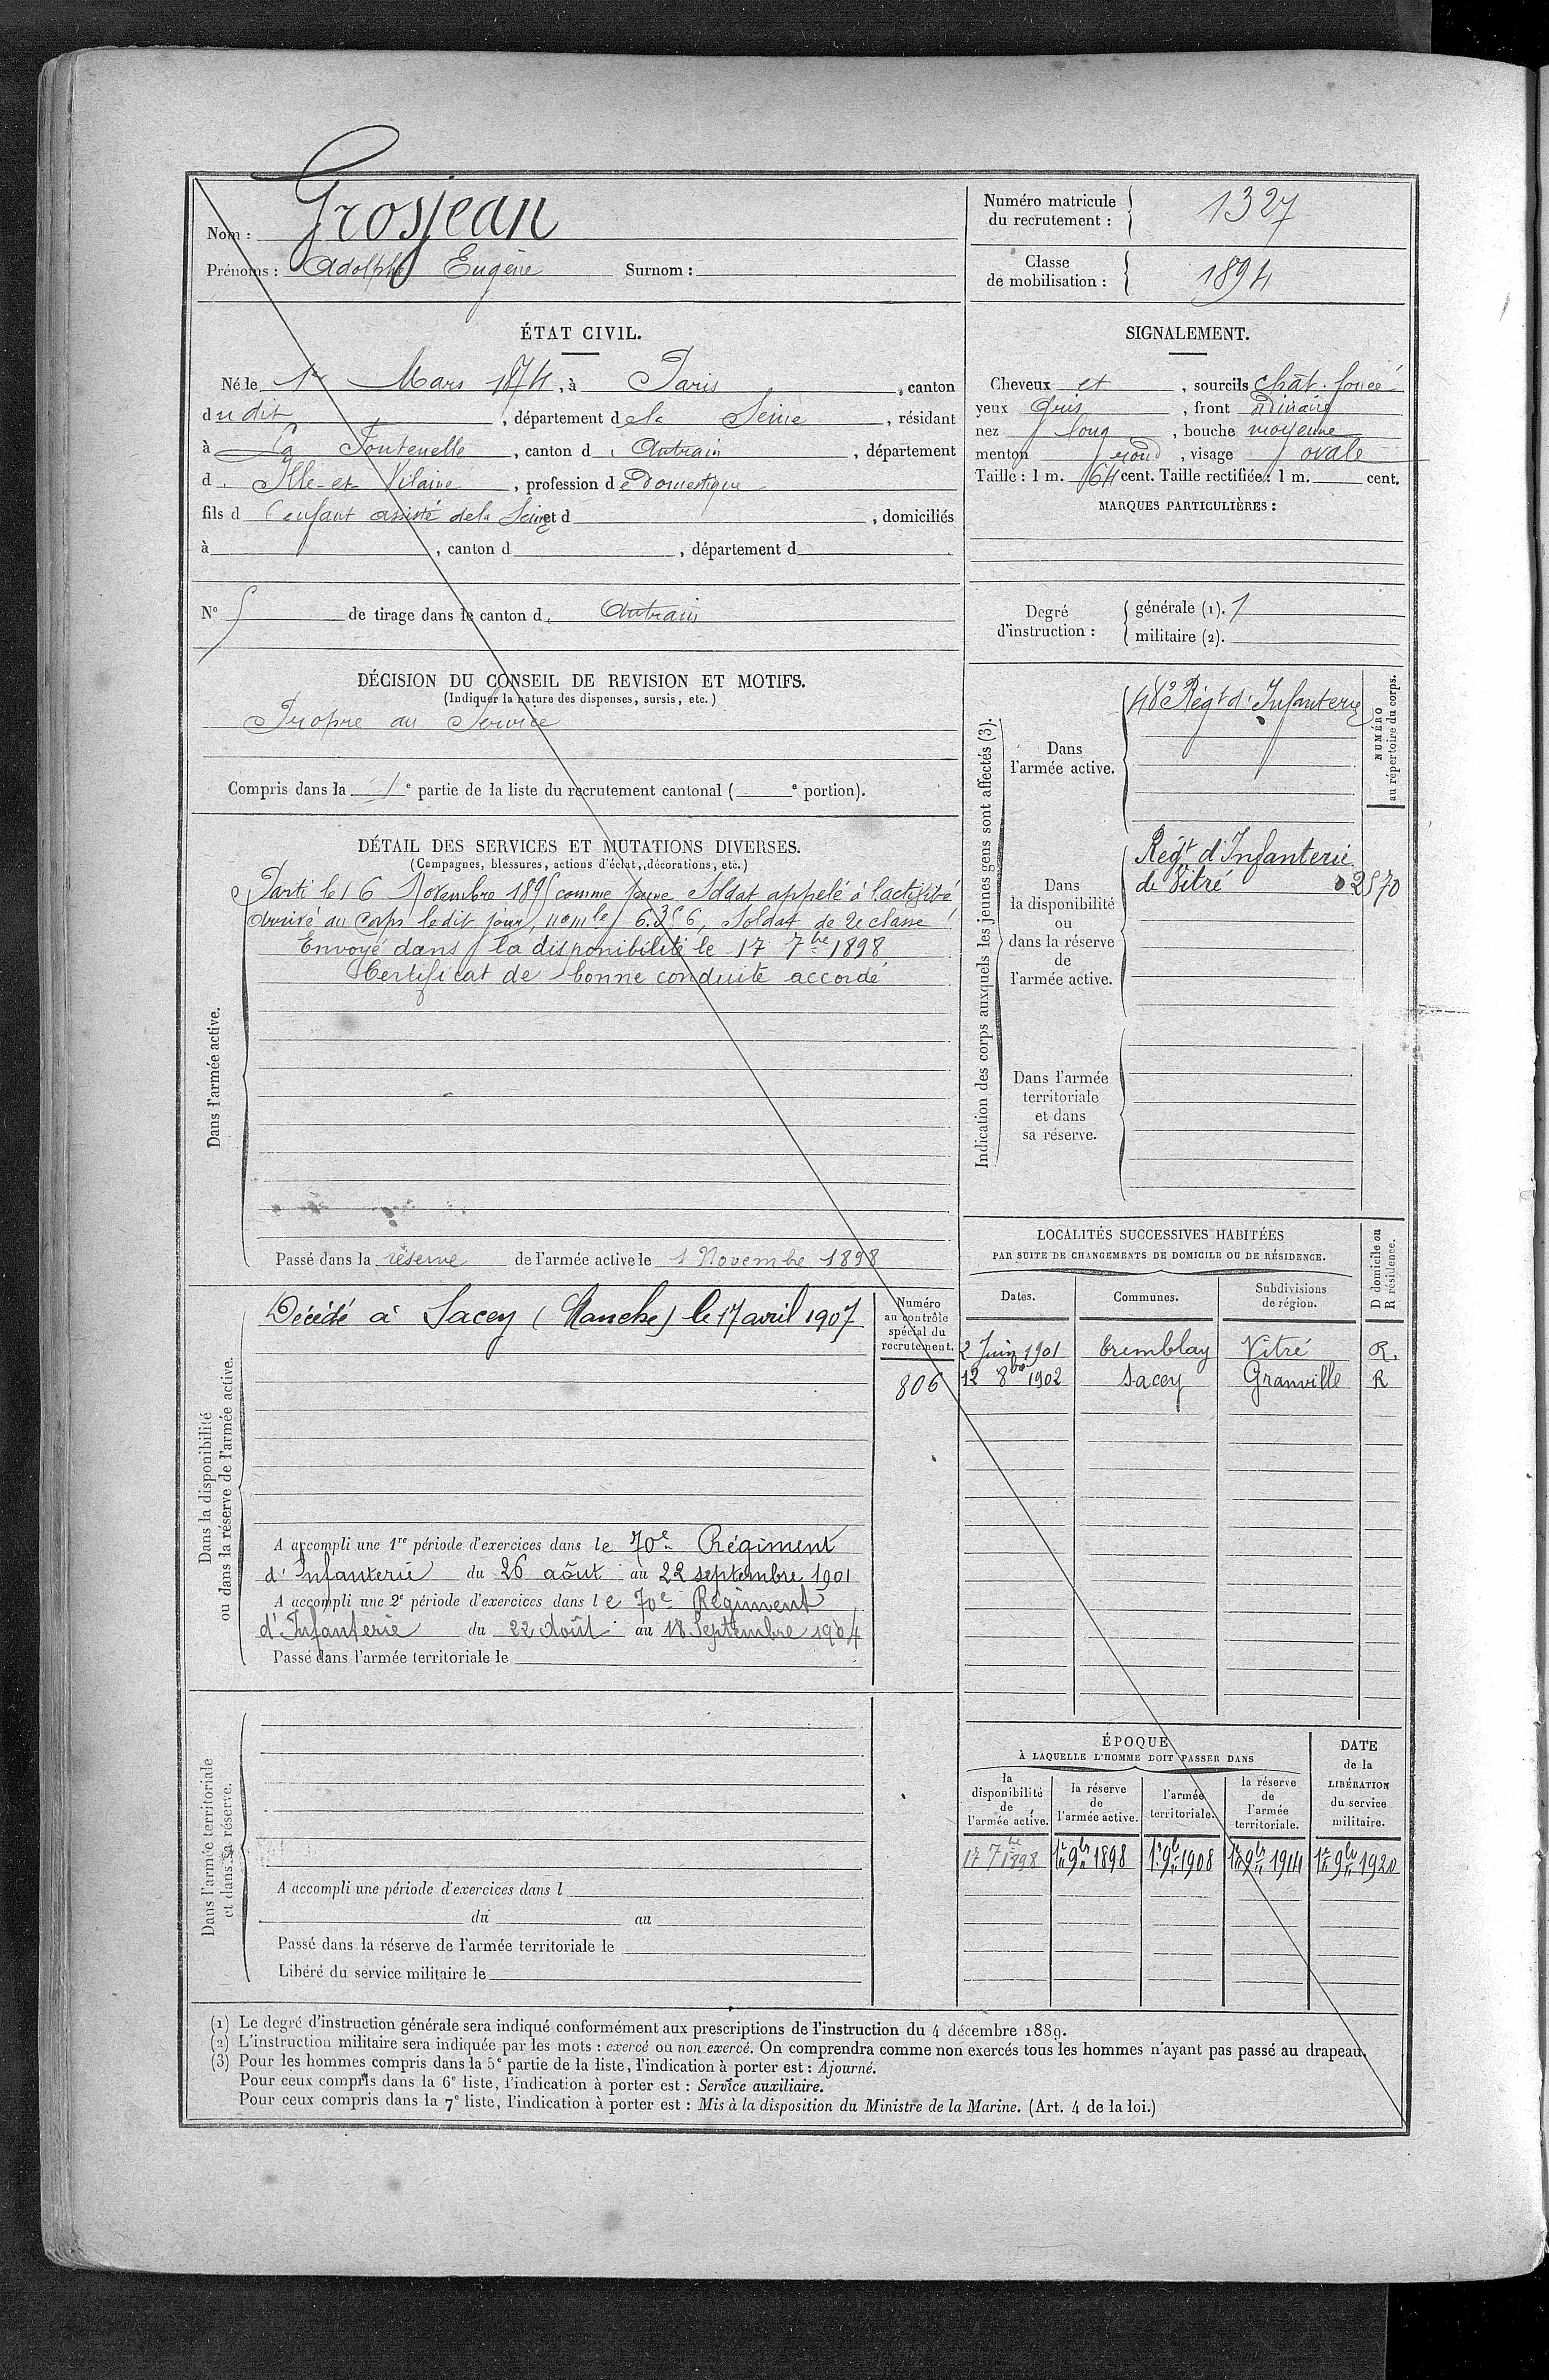 Nom : Grosjean
Prénoms : Adolphe Eugène Surnom :
Numéro matricule du recrutement : 1327
Classe de mobilisation : 1894
ÉTAT CIVIL.
Né le 1er Mars 1874, à Paris, canton
dudit, département de la Seine, résidant
à La Fontenelle, canton d'Antrain, département
d'Ille-et-Vilaine, profession de Domestique
fils d (enfant assisté de la Seine et d , domiciliés
à , canton d , département d
N° 5 de tirage dans le canton d'Antrain
SIGNALEMENT.
Cheveux et , sourcils chât. foncé
yeux Gris, front ordinaire
nez long, bouche moyenne
menton rond, visage ovale
Taille : 1 m. 64 cent. Taille rectifiée : 1 m. cent.
MARQUES PARTICULIÈRES :
Degré d'instruction :
générale (1). 1
militaire (2).
DÉCISION DU CONSEIL DE REVISION ET MOTIFS.
(Indiquer la nature des dispenses, sursis, etc.)
Propre au Service
Compris dans la 1e partie de la liste du recrutement cantonal ( e portion).
DÉTAIL DES SERVICES ET MUTATIONS DIVERSES.
(Campagnes, blessures, actions d'éclat, décorations, etc.)
Dans l'armée active.
Parti le 16 Novembre 1895 comme jeune Soldat appelé à l'activité
Arrivé au Corps le dit jour, Soldat de 2e classe
Envoyé dans la disponibilité le 17 7bre 1898
Certificat de bonne conduite accordé
Passé dans la réserve de l'armée active le 1 Novembre 1898
Indication des corps auxquels les jeunes gens sont affectés (3).
NUMÉRO au répertoire du corps.
Dans l'armée active.
48e Régt d'Infanterie
Dans la disponibilité ou dans la réserve de l'armée active.
Régt d'Infanterie
de Vitré 02570
Dans l'armée territoriale et dans sa réserve.
Dans la disponibilité ou dans la réserve de l'armée active.
Décédé à Sacey (Manche) le 17 avril 1907
Numéro au contrôle spécial du recrutement.
806
A accompli une 1re période d'exercices dans le 70e Régiment
d'Infanterie du 26 août au 22 septembre 1901
A accompli une 2e période d'exercices dans le 70e Régiment
d'Infanterie du 22 Août au 18 Septembre 1904
Passé dans l'armée territoriale le
LOCALITÉS SUCCESSIVES HABITÉES
PAR SUITE DE CHANGEMENTS DE DOMICILE OU DE RÉSIDENCE.
D domicile ou R résidence.
Dates. Communes. Subdivisions de région.
2 Juin 1901 Tremblay Vitré R.
12 8bre 1902 Sacey Granville R
Dans l'armée territoriale et dans sa réserve.
A accompli une période d'exercices dans l
du au
Passé dans la réserve de l'armée territoriale le
Libéré du service militaire le
ÉPOQUE
À LAQUELLE L'HOMME DOIT PASSER DANS
DATE de la LIBÉRATION du service militaire.
la disponibilité de l'armée active. la réserve de l'armée active. l'armée territoriale. la réserve de l'armée territoriale.
17 7bre 1898 1er 9bre 1898 1er 9bre 1908 1er 9bre 1914 1er 9bre 1920
(1) Le degré d'instruction générale sera indiqué conformément aux prescriptions de l'instruction du 4 décembre 1889.
(2) L'instruction militaire sera indiquée par les mots : exercé ou non exercé. On comprendra comme non exercés tous les hommes n'ayant pas passé au drapeau.
(3) Pour les hommes compris dans la 5e partie de la liste, l'indication à porter est : Ajourné.
Pour ceux compris dans la 6e liste, l'indication à porter est : Service auxiliaire.
Pour ceux compris dans la 7e liste, l'indication à porter est : Mis à la disposition du Ministre de la Marine. (Art. 4 de la loi.)